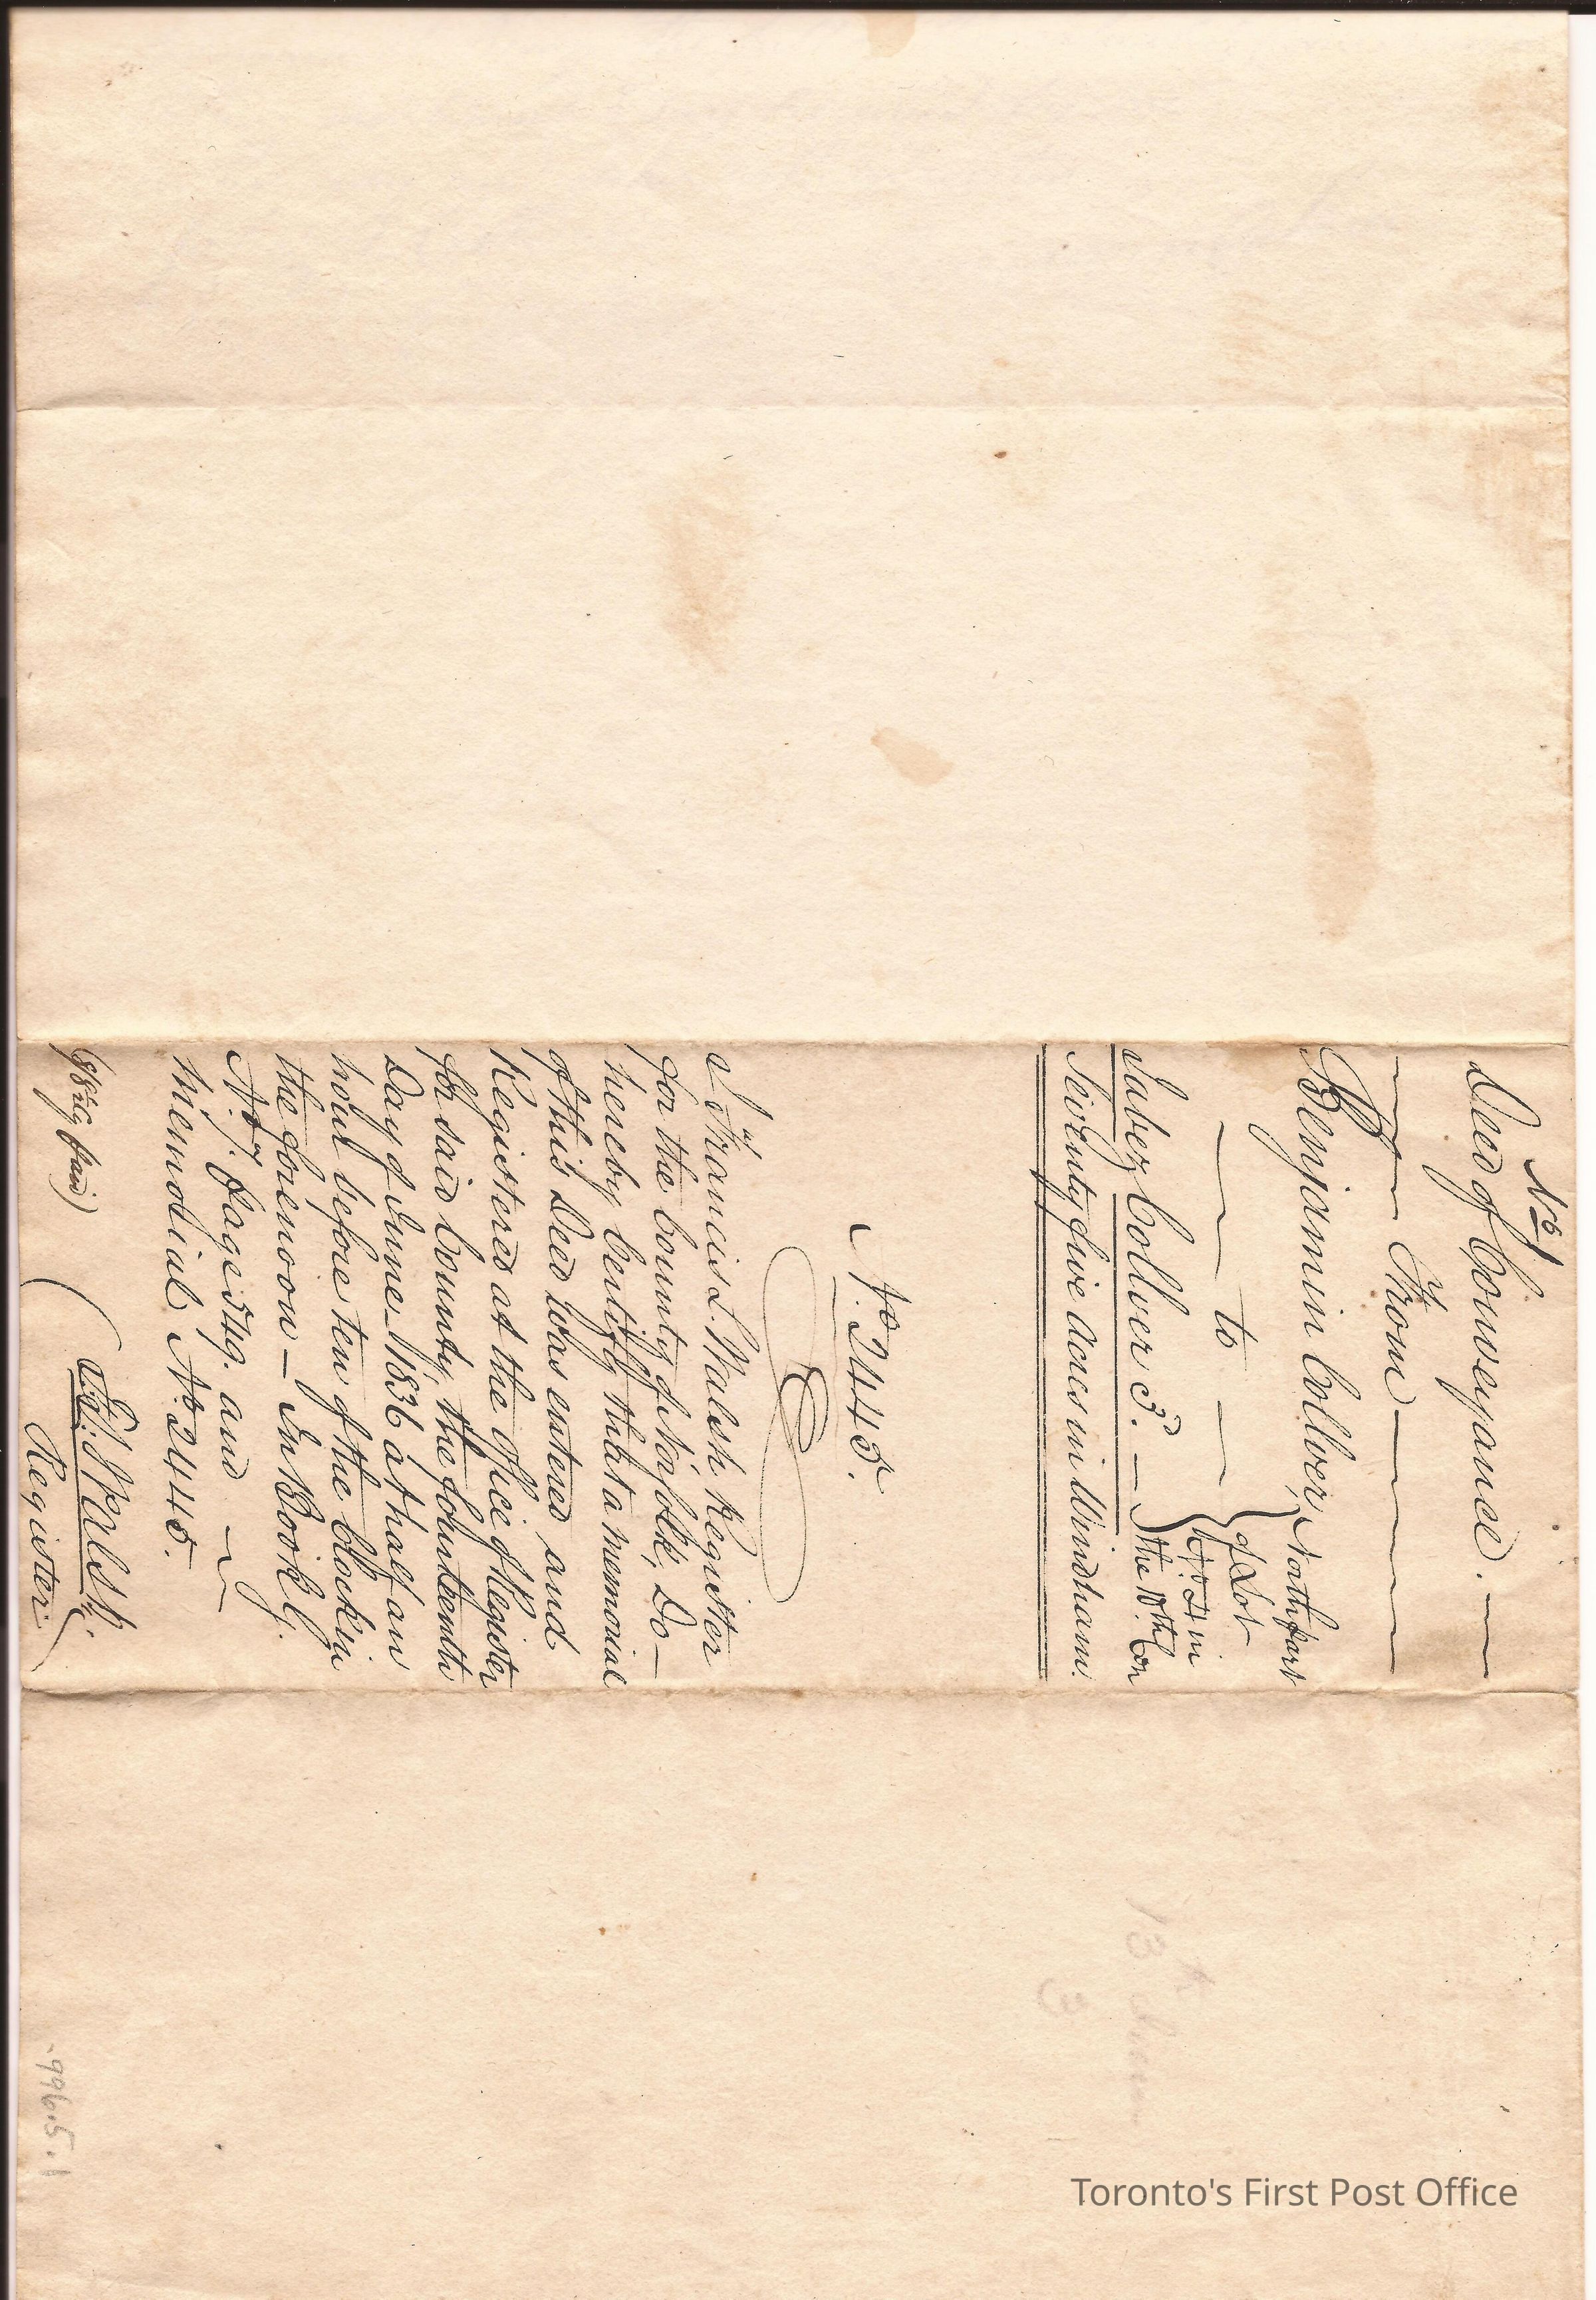 No 1
Deed of Conveyance. —
— From —
Benjamin Collver,
— to —
Jabez Collver 3d. —
North part
of Lot
No. 4 in
the 10th Con
Seventy five acres in Windham.
No. 2445.
I, Francis L. Walsh Register
for the County of Norfolk, Do —
hereby Certify that a memorial
of this Deed Was entered and
Registered at the office of Register
for said County, the fourteenth
Day of June 1836 at half an
hour before ten of the Clock in
the forenoon — In Book G.
page 549. and
Memorial No 2445.
F. L. Walsh.
Register.
paid)
996.5.1
Toronto's First Post Office